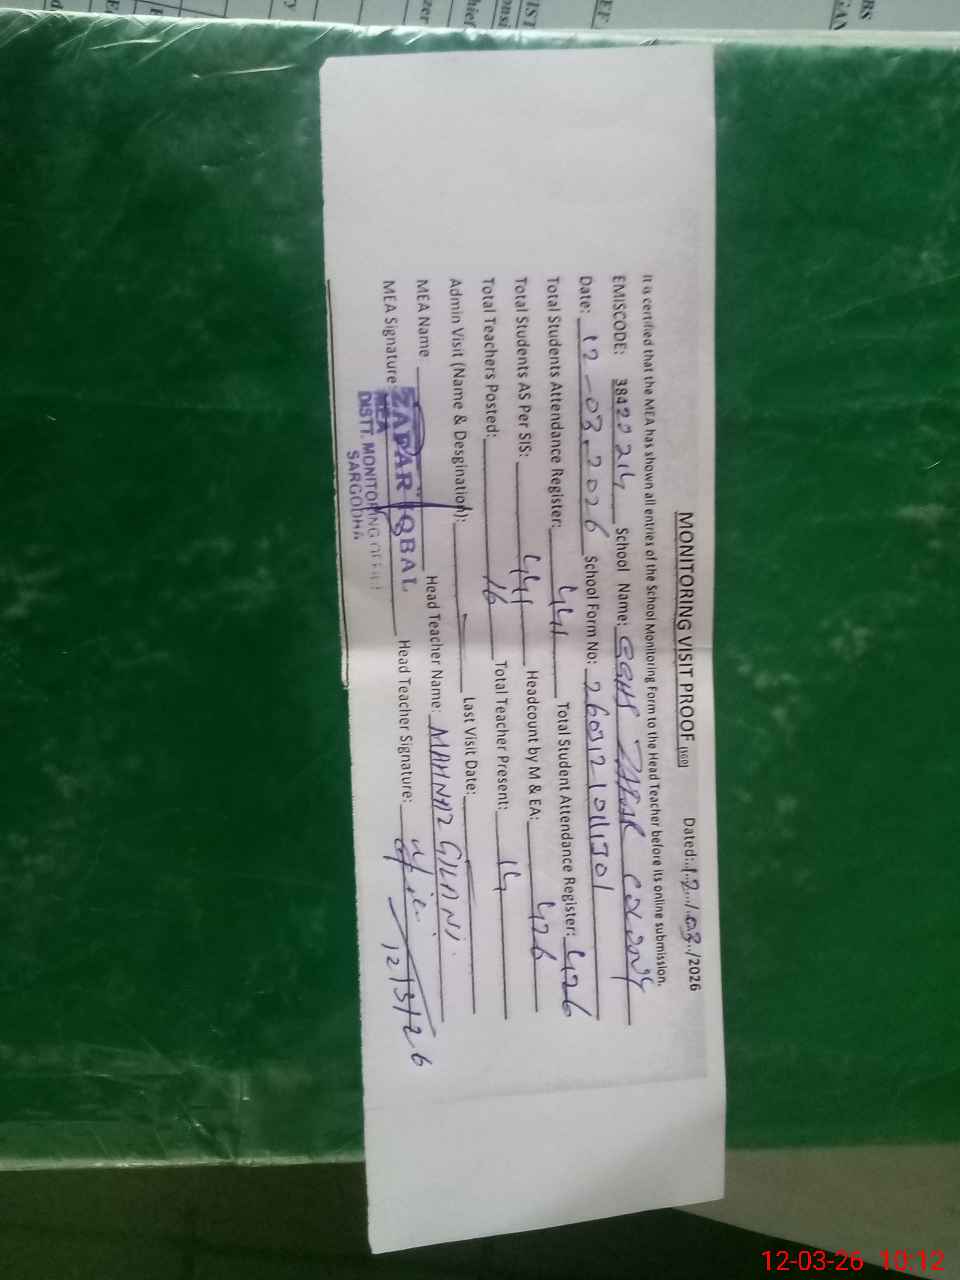 MONITORING VISIT PROOF Dated: 12/03/2026
It is certified that the MEA has shown all entries of the School Monitoring Form to the Head Teacher before its online submission.
EMISCODE: 38420214 School Name: GGHS ZAFAR COLONY
Date: 12-03-2026 School Form No:
Total Students Attendance Register: 441 Total Student Attendance Register: 426
Total Students AS Per SIS: 441 Headcount by M & EA: 426
Total Teachers Posted: 16 Total Teacher Present: 14
Admin Visit (Name & Desgination): Last Visit Date:
MEA Name: Head Teacher Name: MAHNAZ GILANI
MEA Signature: Head Teacher Signature: 12/3/26
ZAFAR IQBAL
MEA
DISTT. MONITORING OFFICE
SARGODHA
12-03-26 10:12